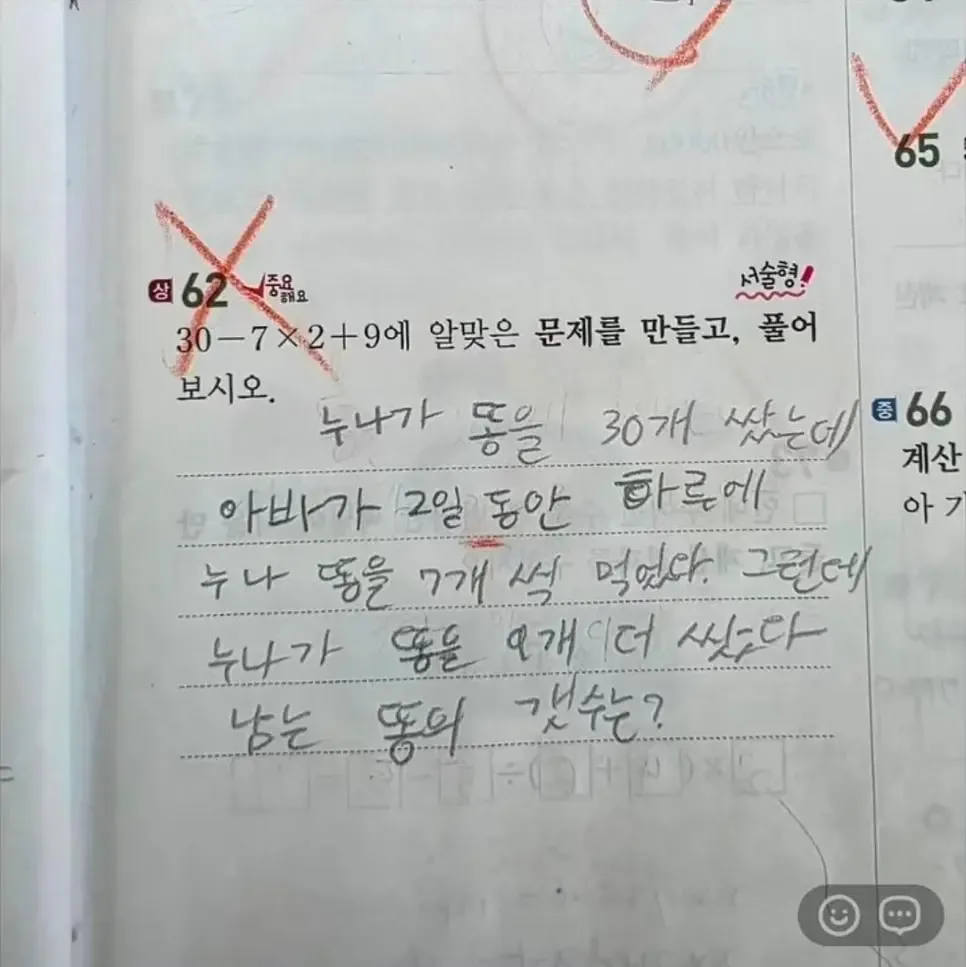 65
상 62 중요해요
서술형!
30-7×2+9에 알맞은 문제를 만들고, 풀어
보시오.
누나가 똥을 30개 쌌는데
아바가 2일 동안 하루에
누나 똥을 7개 씩 먹었다. 그런데
누나가 똥을 9개 더 쌌다
남는 똥의 갯수는?
중 66
계산
아